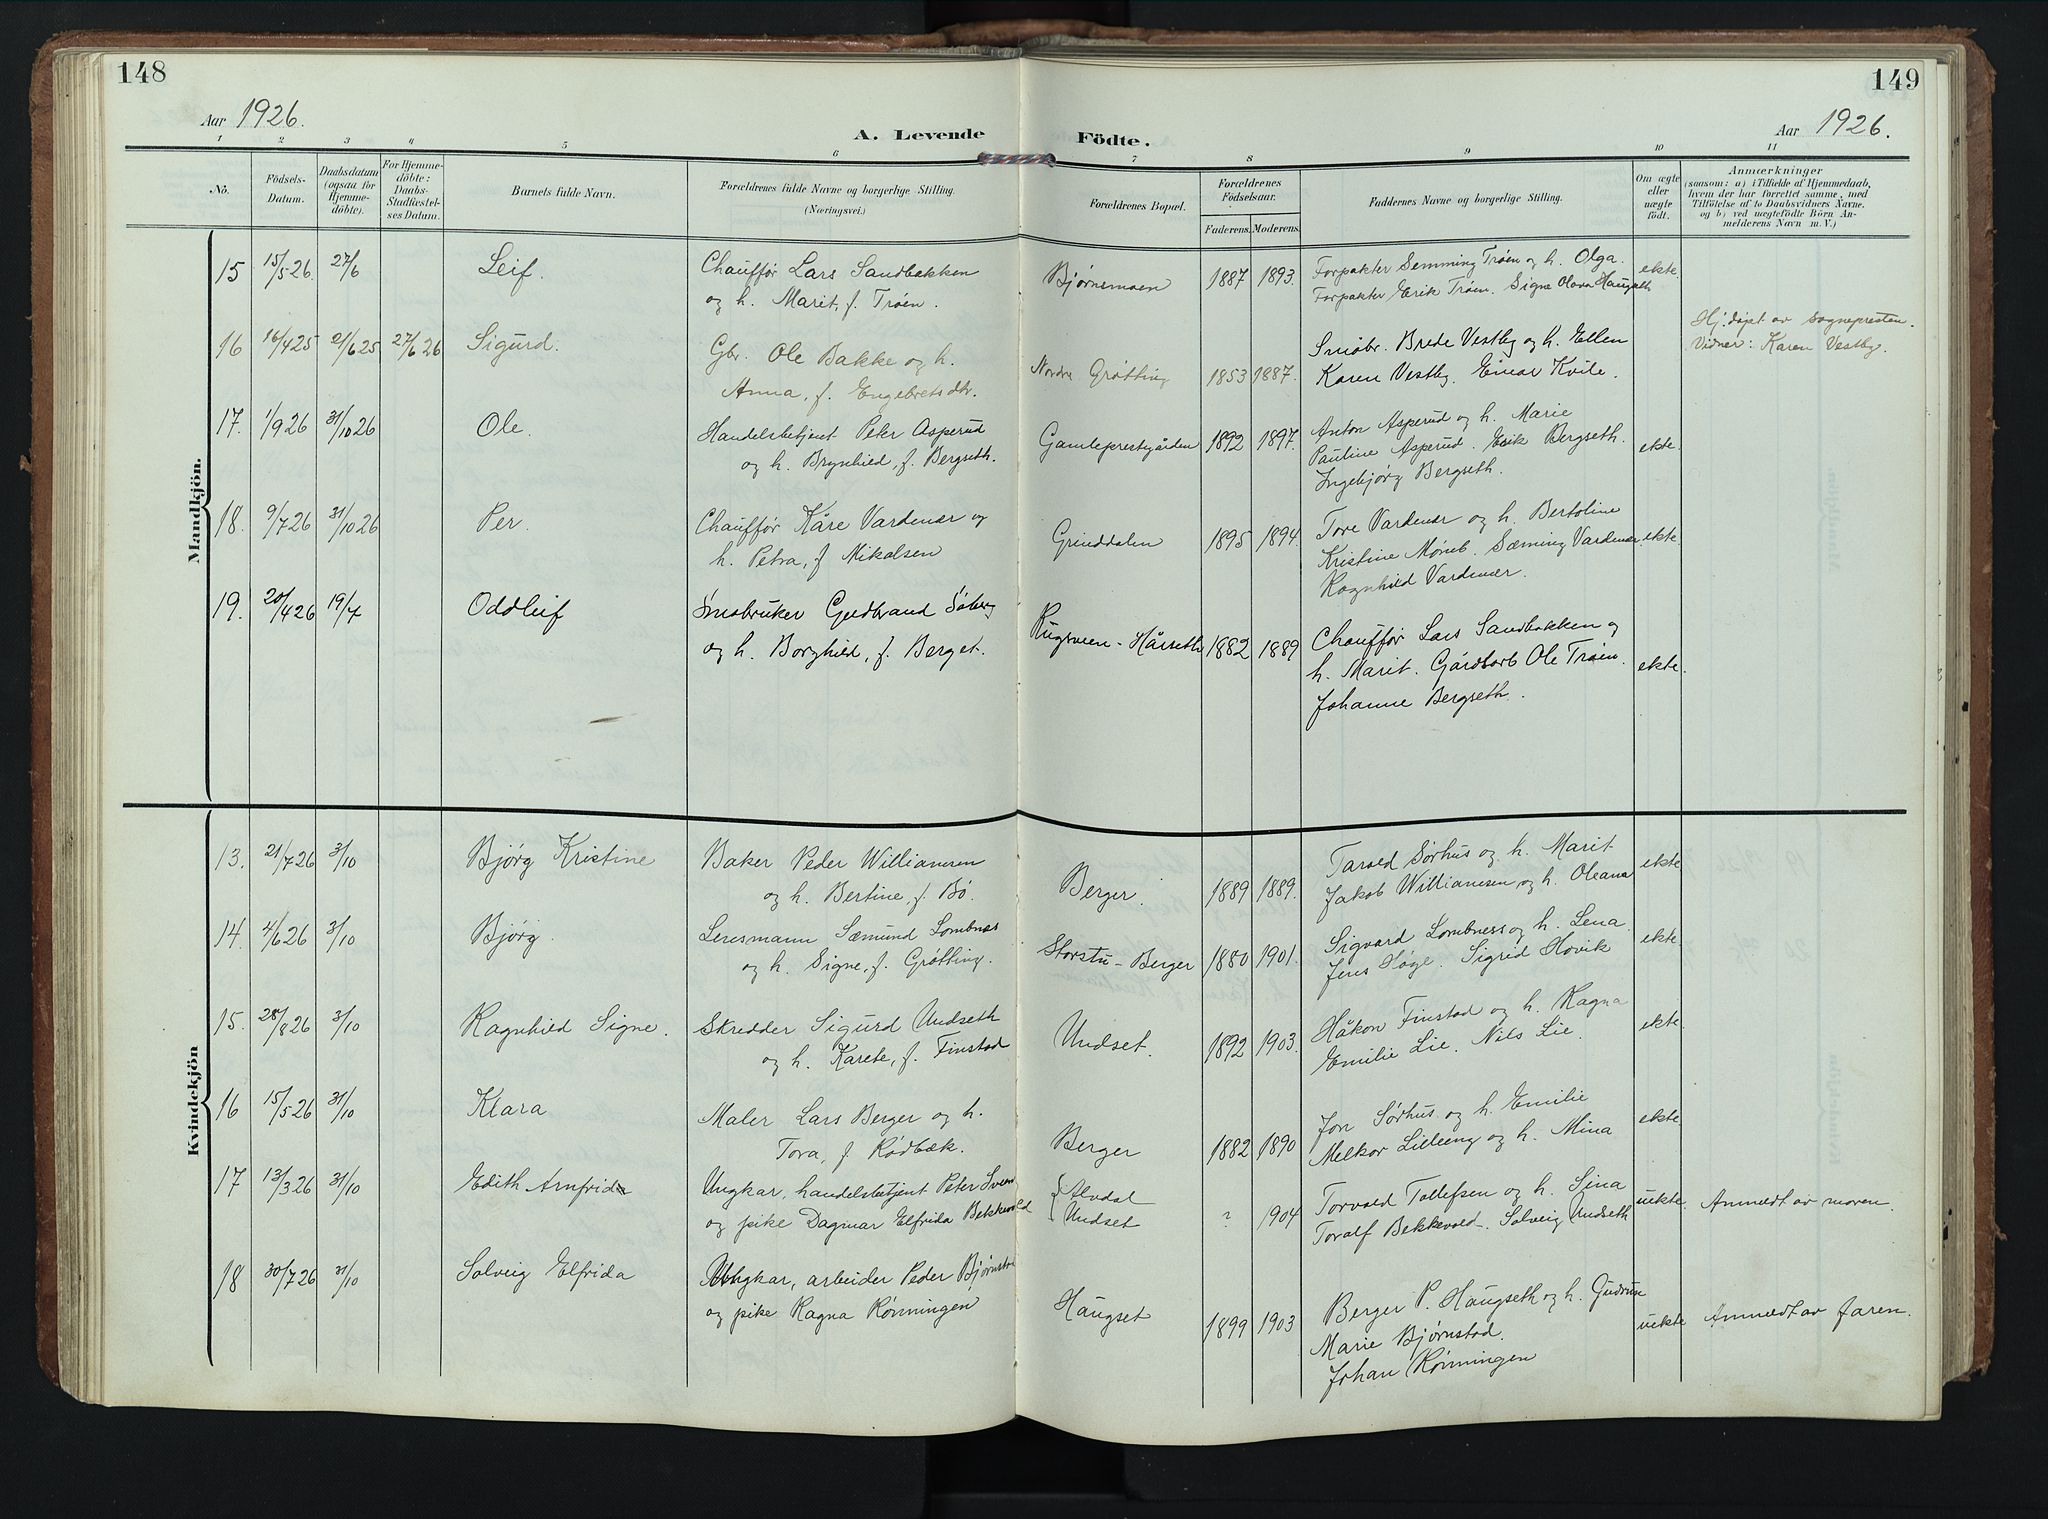 148
149
Aar 1926.
Aar 1926.
A. Levende
Födte.
1 2 3 4 5 6 7 8 9 10 11
Nö. Födsels-Datum. Daabsdatum (ogsaa for Hjemme-döbte). For Hjemme-döbte: Daabs-Stadfæstel-ses Datum. Barnets fulde Navn. Forældrenes fulde Navne og borgerlige Stilling. (Næringsvei.) Forældrenes Bopæl. Forældrenes Födselsaar. Faderens. Moderens. Faddernes Navne og borgerlige Stilling. Om ægte eller uægte födt. Anmærkninger (saasom: a) i Tilfælde af Hjemmedaab, hvem der har forrettet samme, med Tilföielse af to Daabsvidners Navne, og b) ved uægtefödte Börn An-melderens Navn m. V.)
Mandkjön.
15 15/5 26. 27/6 Leif. Chauffør Lars Sandbakken Bjørnemoen 1887 1893. Forpakter Semming Trøen og h. Olga. ekte.
og h. Marit, f. Trøen. Forpakter Erik Trøen. Signe Olava Haugseth
16 16/4 25 21/6 25 27/6 26 Sigurd. Gbr. Ole Bakke og h. Nordre Grøtting 1853 1887. Småbr. Brede Vestby og h. Ellen Hj. døpt av sognepresten.
Anna, f. Engebretsdtr. Karen Vestby. Einar Kvile. Vidner: Karen Vestby.
17. 1/9 26 31/10 26 Ole. Handelsbetjent Peter Asperud Gamleprestgården 1892 1897. Anton Asperud og h. Marie ekte.
og h. Brynhild, f. Bergseth. Pauline Asperud. Erik Bergseth.
Ingebjørg Bergseth.
18. 9/7 26 31/10 26 Per. Chauffør Kåre Vardenær og Grinddalen 1895 1894. Tore Vardenær og h. Bertoline ekte.
h. Petra, f. Mikalsen Kristine Sæming Vardenær.
Ragnhild Vardenær.
19. 20/4 26 19/7 Oddleif Småbruker Gudbrand Søberg Rugsveen - Hårseth 1882 1889 Chauffør Lars Sandbakken og ekte.
og h. Borghild, f. Berget. h. Marit. Gårdbarb Ole Trøen.
Johanne Bergseth.
Kvindekjön
13. 21/7 26 31/10 Bjørg Kristine Baker Peder Williamsen Berger. 1889 1889. Tarald Sørhus og h. Marit ekte
og h. Bertine, f. Bø. Jakob Williamsen og h. Oleana
14. 4/6 26 31/10 Bjørg. Lensmann Sæmund Lombnæs Storstu - Berger 1880 1901. Sigvard Lombness og h. Lena. ekte.
og h. Signe, f. Grøtting. Jens Høge. Sigrid Hovik
15. 28/8 26 31/10 Ragnhild Signe. Skredder Sigurd Undseth Undset. 1892 1903. Håkon Finstad og h. Ragna ekte.
og h. Karete, f. Finstad Emilie Lie. Nils Lie.
16 15/5 26 31/10 Klara Maler Lars Berger og h. Berger 1882 1890 Jon Sørhus og h. Emilie ekte.
Tora, f. Rødbæk. Melkor Lilleeng og h. Mina
17 13/3 26 31/10 Edith Arnfrid Ungkar, handelsbetjent Peter Sven Alvdal ? 1904 Torvald Tollefsen og h. Sina uekte. Anmeldt av moren.
og pike Dagmar Elfrida Bekkevold Undset Toralf Bekkevold. Solveig Undseth
18 30/7 26 31/10 Solveig Elfrida Ungkar, arbeider Peder Bjørnstad Haugset 1899 1903 Berger P. Haugseth og h. Gudrun uekte Anmeldt av faren.
og pike Ragna Rønningen Marie Bjørnstad.
Johan Rønningen